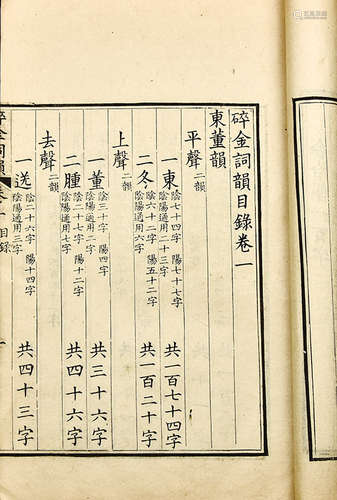 碎金詞韻目錄卷一
東董韻
平聲二韻
一東 陰七十四字 陽七十七字 陰陽通用二十三字 共一百七十四字
二冬 陰六十二字 陽五十二字 陰陽通用六字 共一百二十字
上聲二韻
一董 陰三十字 陽四字 陰陽通用二字 共三十六字
二腫 陰二十七字 陽十二字 陰陽通用七字 共四十六字
去聲二韻
一送 陰二十六字 陽十四字 陰陽通用三字 共四十三字
碎金詞韻 卷一 目錄 一